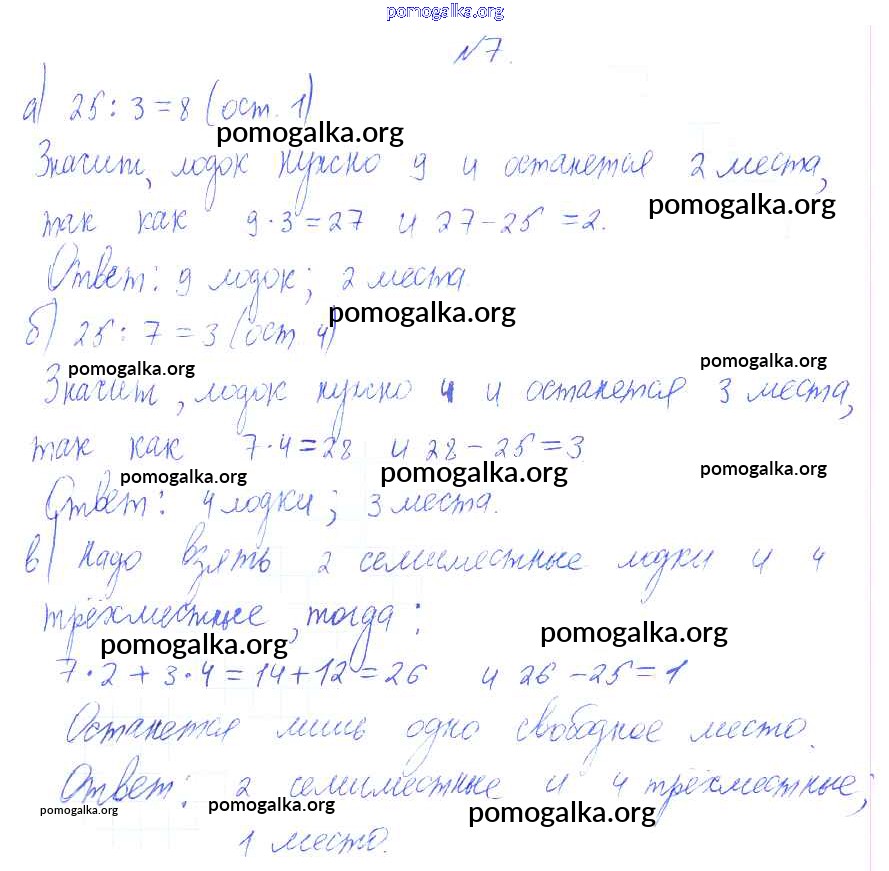 pomogalka.org
№7.
а) 25 : 3 = 8 (ост. 1)
pomogalka.org
Значит, лодок нужно 9 и останется 2 места,
pomogalka.org
так как 9·3 = 27 и 27 − 25 = 2.
Ответ: 9 лодок; 2 места.
pomogalka.org
б) 25 : 7 = 3 (ост. 4)
pomogalka.org pomogalka.org
Значит, лодок нужно 4 и останется 3 места,
так как 7·4 = 28 и 28 − 25 = 3
pomogalka.org pomogalka.org pomogalka.org
Ответ: 4 лодки; 3 места.
в) Надо взять 2 семиместные лодки и 4
трёхместные, тогда:
pomogalka.org pomogalka.org
7·2 + 3·4 = 14 + 12 = 26 и 26 − 25 = 1
Останется лишь одно свободное место.
Ответ: 2 семиместные и 4 трёхместные;
pomogalka.org pomogalka.org pomogalka.org
1 место.